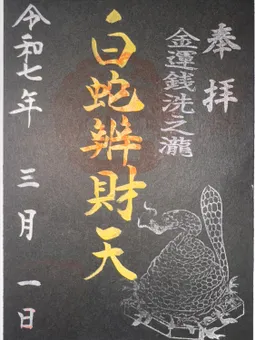 奉拝
金運銭洗之瀧
白蛇辨財天
令和七年三月一日